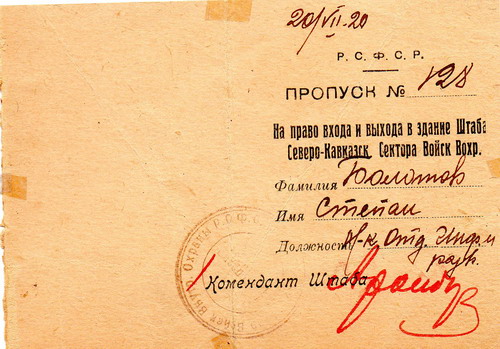 20/VII-20
Р. С. Ф. С. Р.
ПРОПУСК № 128
На право входа и выхода в здание Штаба
Северо-Кавказск. Сектора Войск Вохр.
Фамилия Болотов
Имя Степан
Должность Н-к Отд. Инф. и
разв.
Комендант Штаба